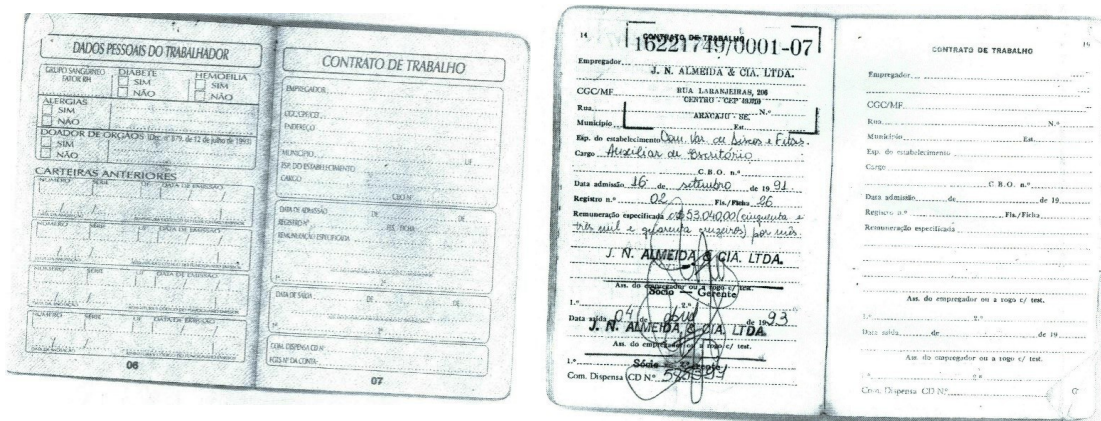 DADOS PESSOAIS DO TRABALHADOR
GRUPO SANGÜÍNEO FATOR RH
DIABETE
SIM
NÃO
HEMOFILIA
SIM
NÃO
ALERGIAS
SIM
NÃO
DOADOR DE ÓRGÃOS (Dec. nº 879, de 12 de julho de 1993)
SIM
NÃO
CARTEIRAS ANTERIORES
NÚMERO SÉRIE UF DATA DE EMISSÃO
NÚMERO SÉRIE UF DATA DE EMISSÃO
NÚMERO SÉRIE UF DATA DE EMISSÃO
NÚMERO SÉRIE UF DATA DE EMISSÃO
06
CONTRATO DE TRABALHO
EMPREGADOR
ENDEREÇO
MUNICÍPIO UF
ESP. DO ESTABELECIMENTO
CARGO
CBO Nº
DATA DE ADMISSÃO DE DE
REGISTRO Nº FLS./FICHA
REMUNERAÇÃO ESPECIFICADA
1º 2º
DATA DE SAÍDA DE DE
1º 2º
COM. DISPENSA CD Nº
FGTS Nº DA CONTA
07
14
CONTRATO DE TRABALHO
16221749/0001-07
Empregador
J. N. ALMEIDA & CIA. LTDA.
CGC/MF RUA LARANJEIRAS, 206
CENTRO - CEP
Rua N.º
ARACAJU - SE.
Município Est.
Esp. do estabelecimento Com. Var. de Discos e Fitas.
Cargo Auxiliar de Escritório
C.B.O. n.º
Data admissão 16 de setembro de 1991
Registro n.º 02 Fls./Ficha 26
Remuneração especificada Cr$ 53.040,00 (cinquenta e
três mil e quarenta cruzeiros) por mês
J. N. ALMEIDA & CIA. LTDA.
Ass. do empregador ou a rogo c/ test.
Sócio — Gerente
1.º 2.º
Data saída 04 de abril de 1993
J. N. ALMEIDA & CIA. LTDA.
Ass. do empregador ou a rogo c/ test.
1.º Sócio — Gerente
Com. Dispensa CD N.º
CONTRATO DE TRABALHO
Empregador
CGC/MF
Rua N.º
Município Est.
Esp. do estabelecimento
Cargo
C.B.O. n.º
Data admissão de de 19
Registro n.º Fls./Ficha
Remuneração especificada
Ass. do empregador ou a rogo c/ test.
1.º 2.º
Data saída de de 19
Ass. do empregador ou a rogo c/ test.
2.º
Com. Dispensa CD N.º